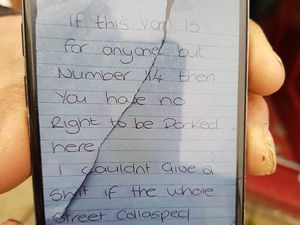 If this van is
for anyone but
Number 14 then
You have no
Right to be Parked
here
I couldnt Give a
Shit if the whole
Street Collasped